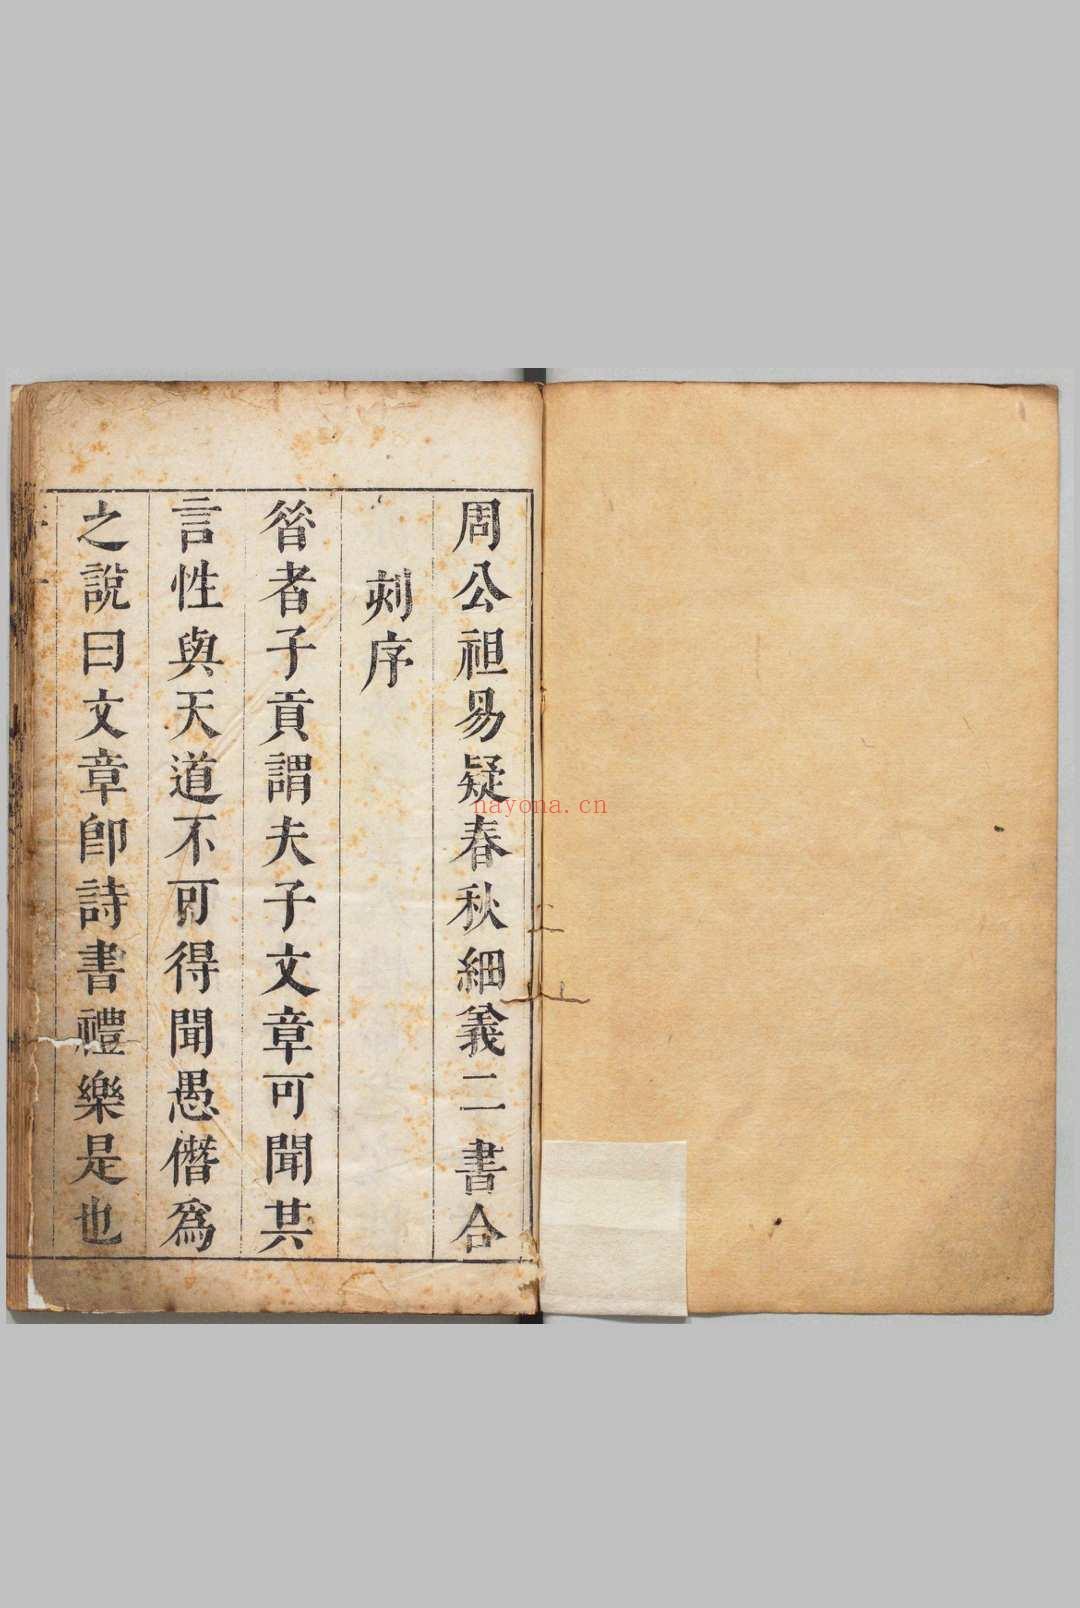 周公祖易疑春秋細義二書合
刻序
昝者子貢謂夫子文章可聞其
言性與天道不可得聞愚僭爲
之說曰文章卽詩書禮樂是也
nayona.cn